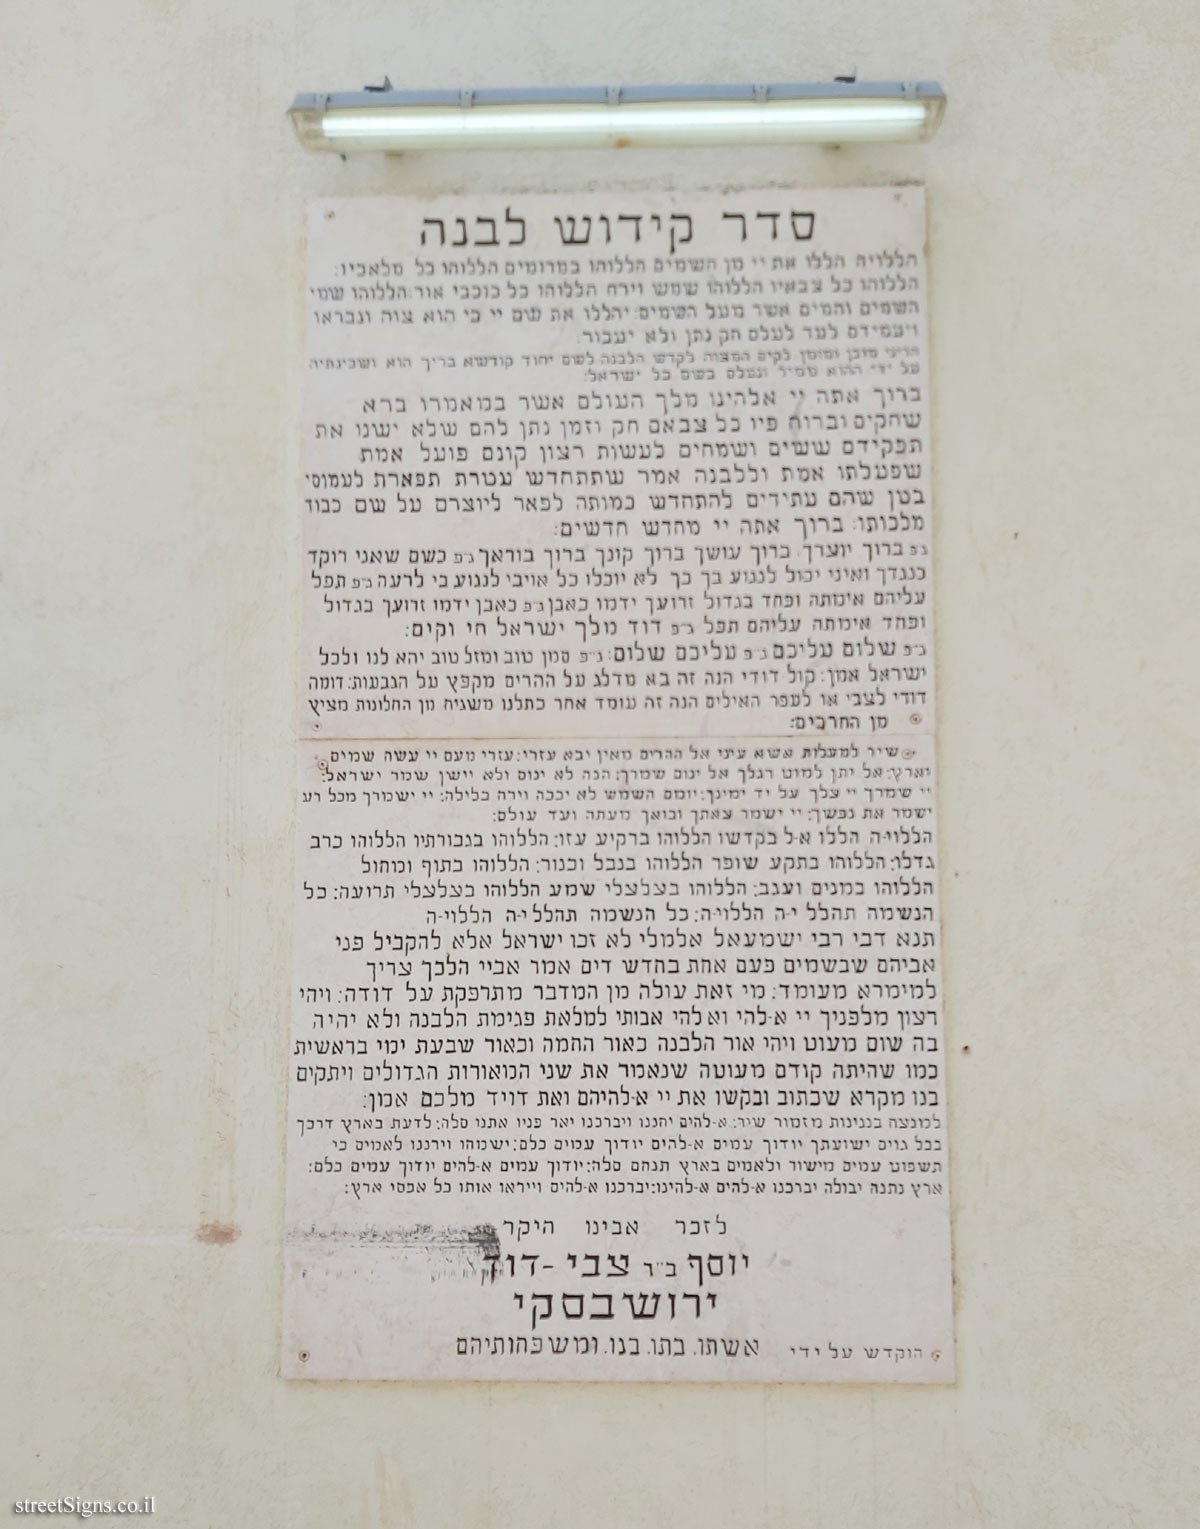 סדר קידוש לבנה
הללויה הללו את יי מן השמים הללוהו במרומים הללוהו כל מלאכיו:
הללוהו כל צבאיו הללוהו שמש וירח הללוהו כל כוכבי אור: הללוהו שמי
השמים והמים אשר מעל השמים: יהללו את שם יי כי הוא צוה ונבראו
ויעמידם לעד לעלם חק נתן ולא יעבור:
הריני מוכן ומזומן לקים המצוה לקדש הלבנה לשם יחוד קודשא בריך הוא ושכינתיה
על ידי ההוא טמיר ונעלם בשם כל ישראל:
ברוך אתה יי אלהינו מלך העולם אשר במאמרו ברא
שחקים וברוח פיו כל צבאם חק וזמן נתן להם שלא ישנו את
תפקידם ששים ושמחים לעשות רצון קונם פועל אמת
שפעלתו אמת וללבנה אמר שתתחדש עטרת תפארת לעמוסי
בטן שהם עתידים להתחדש כמותה לפאר ליוצרם על שם כבוד
מלכותו: ברוך אתה יי מחדש חדשים:
ג״פ ברוך יוצרך. ברוך עושך ברוך קונך ברוך בוראך ג״פ כשם שאני רוקד
כנגדך ואיני יכול לנגוע בך כך לא יוכלו כל אויבי לנגוע בי לרעה ג״פ תפל
עליהם אימתה ופחד בגדול זרועך ידמו כאבן ג״פ כאבן ידמו זרועך בגדול
ופחד אימתה עליהם תפל ג״פ דוד מלך ישראל חי וקים:
ג״פ שלום עליכם ג״פ עליכם שלום: ג״פ סמן טוב ומזל טוב יהא לנו ולכל
ישראל אמן: קול דודי הנה זה בא מדלג על ההרים מקפץ על הגבעות: דומה
דודי לצבי או לעפר האילים הנה זה עומד אחר כתלנו משגיח מן החלונות מציץ
מן החרכים:
שיר למעלות אשא עיני אל ההרים מאין יבא עזרי: עזרי מעם יי עשה שמים
וארץ: אל יתן למוט רגלך אל ינום שמרך: הנה לא ינום ולא יישן שמר ישראל:
יי שמרך יי צלך על יד ימינך: יומם השמש לא יככה וירח בלילה: יי ישמרך מכל רע
ישמר את נפשך: יי ישמר צאתך ובואך מעתה ועד עולם:
הללוי-ה הללו א-ל בקדשו הללוהו ברקיע עזו: הללוהו בגבורתיו הללוהו כרב
גדלו: הללוהו בתקע שופר הללוהו בנבל וכנור: הללוהו בתוף ומחול
הללוהו במנים ועגב: הללוהו בצלצלי שמע הללוהו בצלצלי תרועה: כל
הנשמה תהלל י-ה הללוי-ה: כל הנשמה תהלל י-ה הללוי-ה
תנא דבי רבי ישמעאל אלמלי לא זכו ישראל אלא להקביל פני
אביהם שבשמים פעם אחת בחדש דים אמר אביי הלכך צריך
למימרא מעומד: מי זאת עולה מן המדבר מתרפקת על דודה: ויהי
רצון מלפניך יי א-להי וא-להי אבותי למלאת פגימת הלבנה ולא יהיה
בה שום מעוט ויהי אור הלבנה כאור החמה וכאור שבעת ימי בראשית
כמו שהיתה קודם מעוטה שנאמר את שני המאורות הגדולים ויתקים
בנו מקרא שכתוב ובקשו את יי א-להיהם ואת דויד מלכם אמן:
למנצח בנגינות מזמור שיר: א-להים יחננו ויברכנו יאר פניו אתנו סלה: לדעת בארץ דרכך
בכל גוים ישועתך יודוך עמים א-להים יודוך עמים כלם: ישמחו וירננו לאמים כי
תשפוט עמים מישור ולאמים בארץ תנחם סלה: יודוך עמים א-להים יודוך עמים כלם:
ארץ נתנה יבולה יברכנו א-להים א-להינו: יברכנו א-להים וייראו אותו כל אפסי ארץ:
לזכר אבינו היקר
יוסף ב״ר צבי-דוד
ירושבסקי
הוקדש על ידי אשתו. בתו. בנו. ומשפחותיהם
streetSigns.co.il